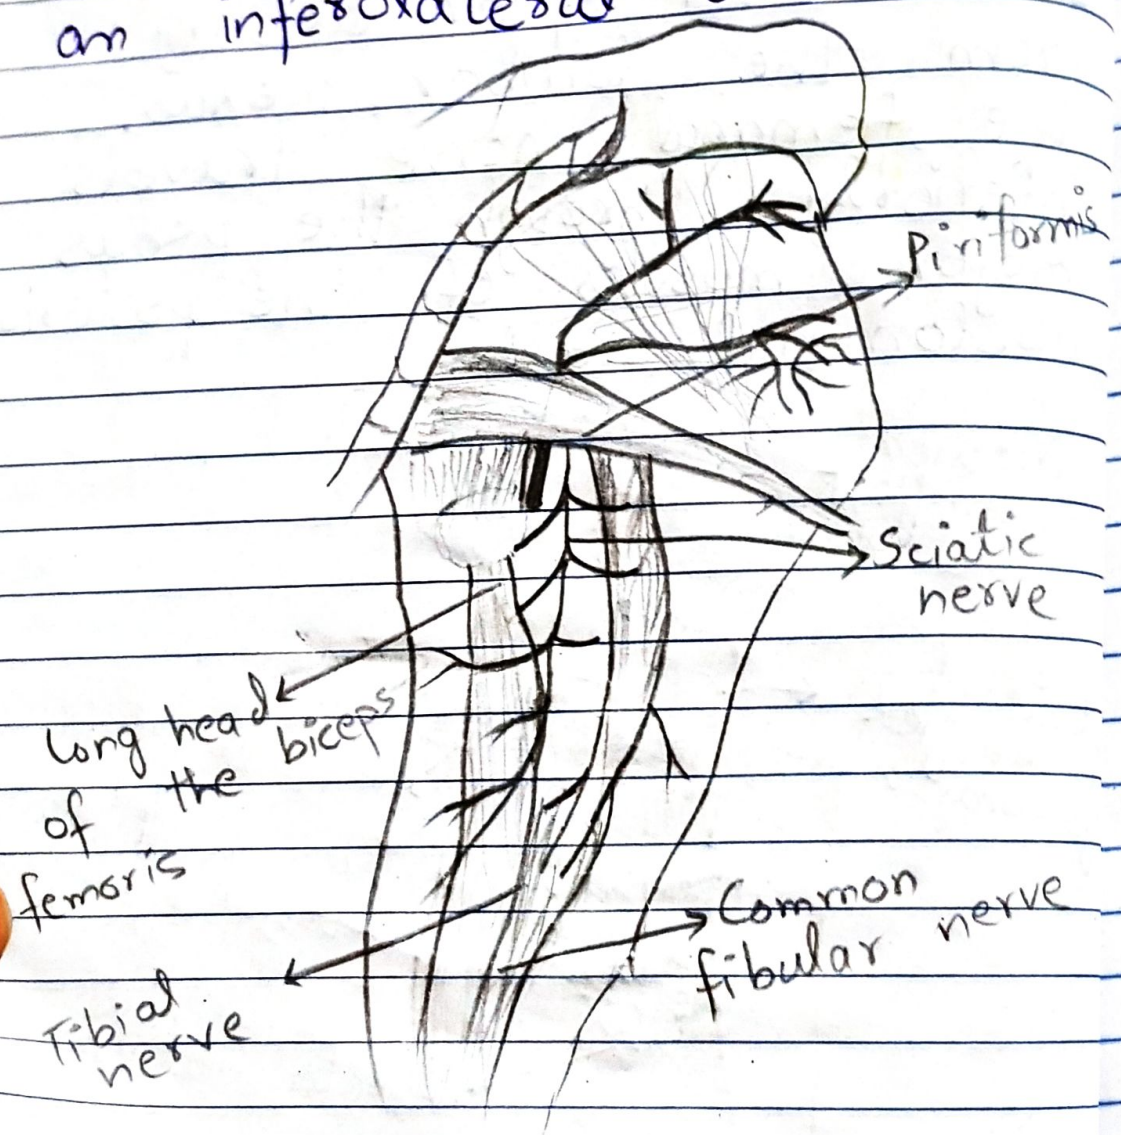 an inferoxalesal
Piriformis
Sciatic
nerve
Long head
of the biceps
femoris
Common
fibular nerve
Tibial
nerve